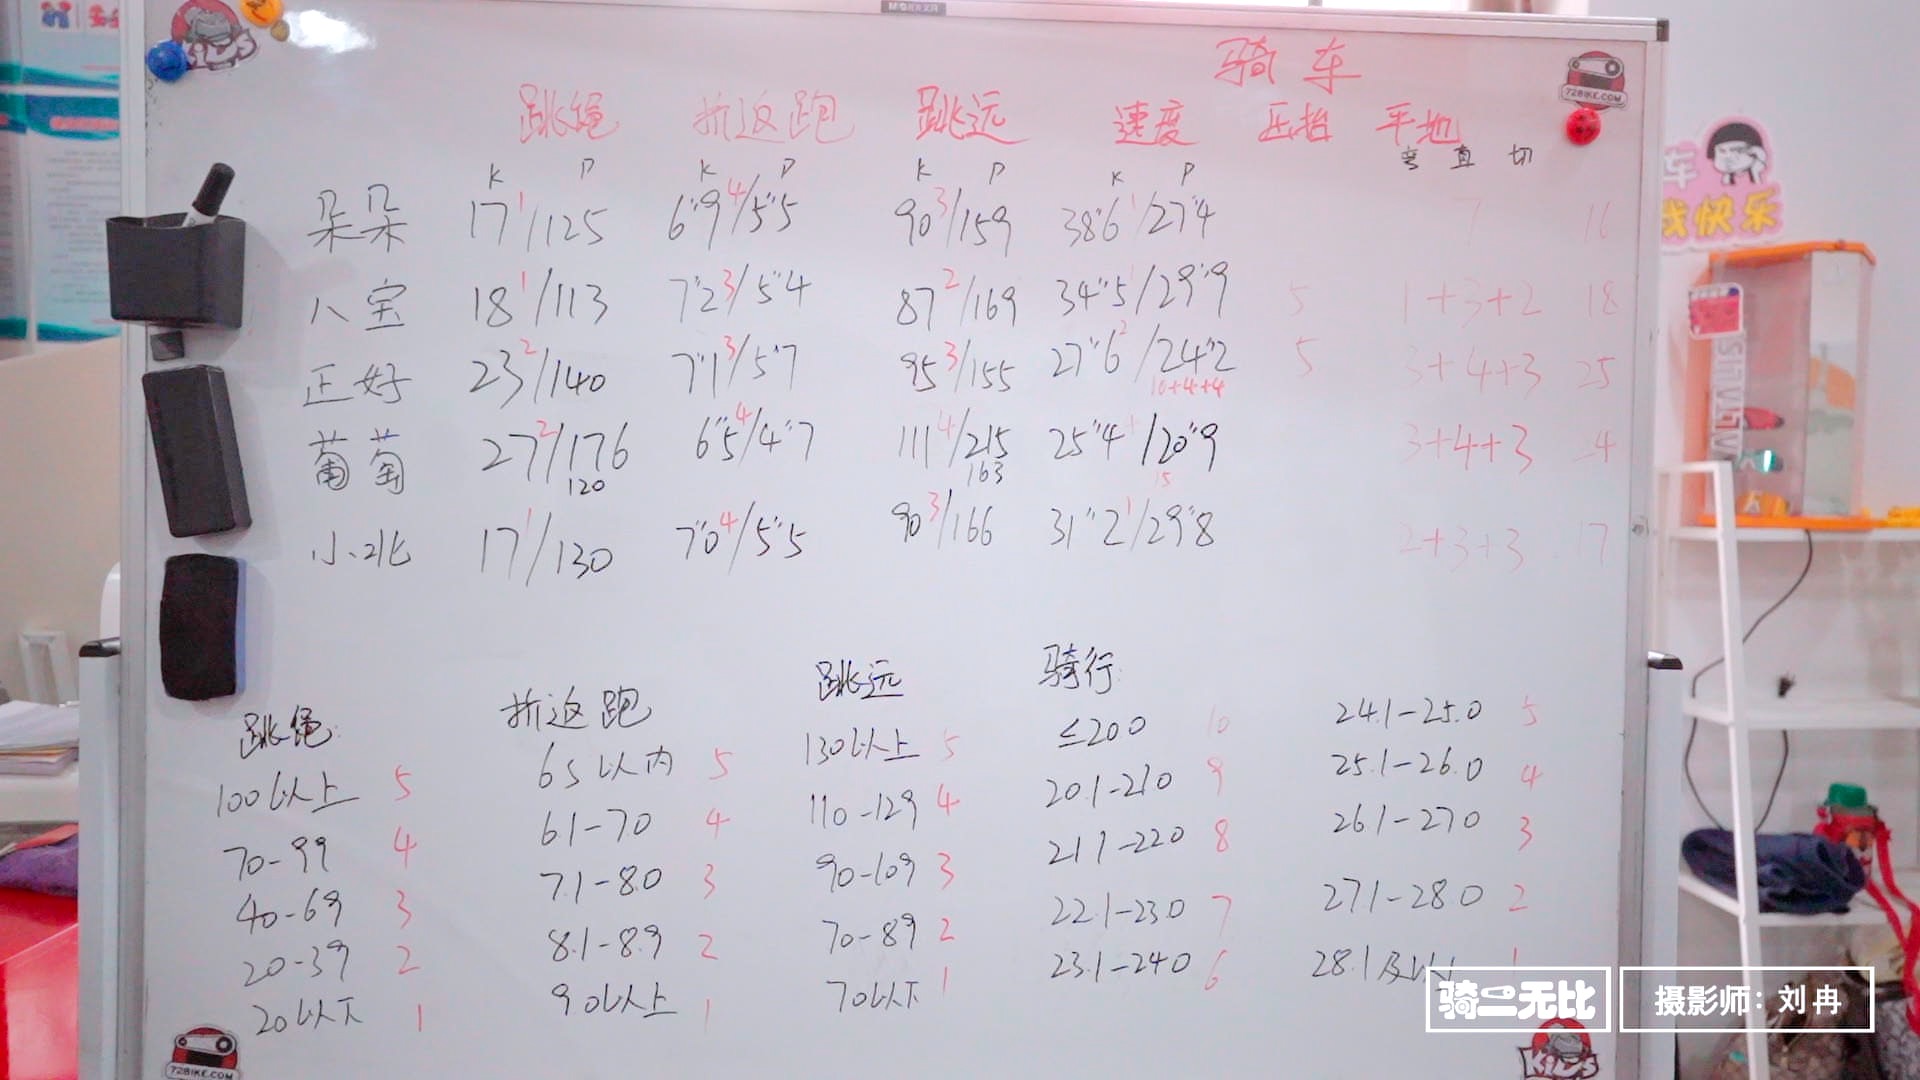 骑车
跳绳 折返跑 跳远 速度 压抬 平地
弯 直 切
K P K P K P K P
朵朵 17 1/125 6"9 4/5"5 90 3/159 38"6 1/27"4 7 16
八宝 18 1/113 7"2 3/5"4 87 2/169 34"5 1/29"9 5 1+3+2 18
正好 23 2/140 7"1 3/5"7 95 3/155 27"6 2/24"2 5 3+4+3 25
10+4+4
葡萄 27 2/176 6"5 4/4"7 111 4/215 25"4 /20"9 3+4+3
120 163 15
小北 17 1/130 7"0 4/5"5 90 3/166 31"2 1/29"8 2+3+3 17
跳绳:
100以上 5
70-99 4
40-69 3
20-39 2
20以下 1
折返跑
6s以内 5
6.1-7.0 4
7.1-8.0 3
8.1-8.9 2
9.0以上 1
跳远
130以上 5
110-129 4
90-109 3
70-89 2
70以下 1
骑行:
≤20.0 10
20.1-21.0 9
21.1-22.0 8
22.1-23.0 7
23.1-24.0 6
24.1-25.0 5
25.1-26.0 4
26.1-27.0 3
27.1-28.0 2
28.1及以 1
72BIKE.COM
72BIKE.COM
KIDS
骑二无比
摄影师：刘冉
M&G
车
我快乐